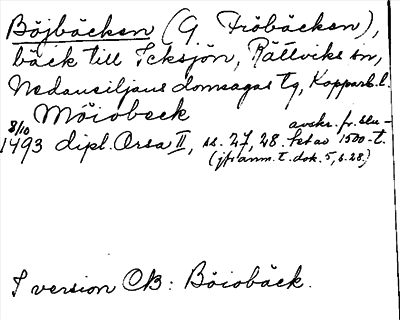 Böjbäcken (G Fröbäcken),
bäck till Icksjön, Rättviks sn,
Nedansiljans domsagas tg, Kopparb. l.
Möiobeck
8/10 1493 dipl. Orsa II, ss. 27, 28. avskr. fr. slu-
tet av 1500-t.
(jfr anm. t. dok. 5, s. 28.)
I version CB: Böiobäck.